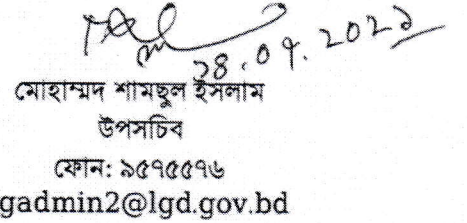 ১৪.০৭.২০২১
মোহাম্মদ শামছুল ইসলাম
উপসচিব
ফোন: ৯৫৭৫৫৭৬
gadmin2@lgd.gov.bd